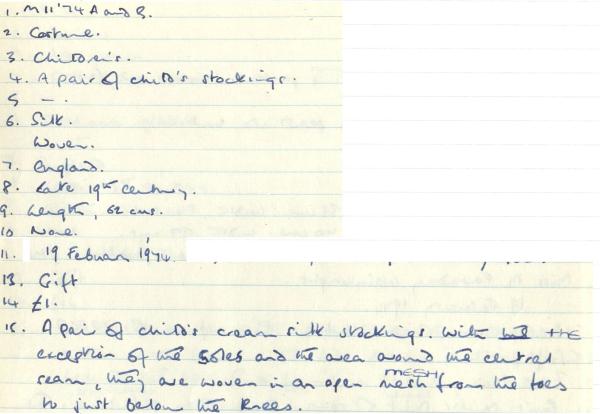 1. M11'74 A and B.
2. Costume.
3. Children's.
4. A pair of child's stockings.
5 —.
6. Silk.
Woven.
7. England.
8. Late 19th century.
9. Length, 62 cms.
10 None.
11. 19 February 1974.
13. Gift
14 £1.
15. A pair of child's cream silk stockings. With the
exception of the soles and the area around the central
seam, they are woven in an open mesh MESH from the toes
to just below the knees.